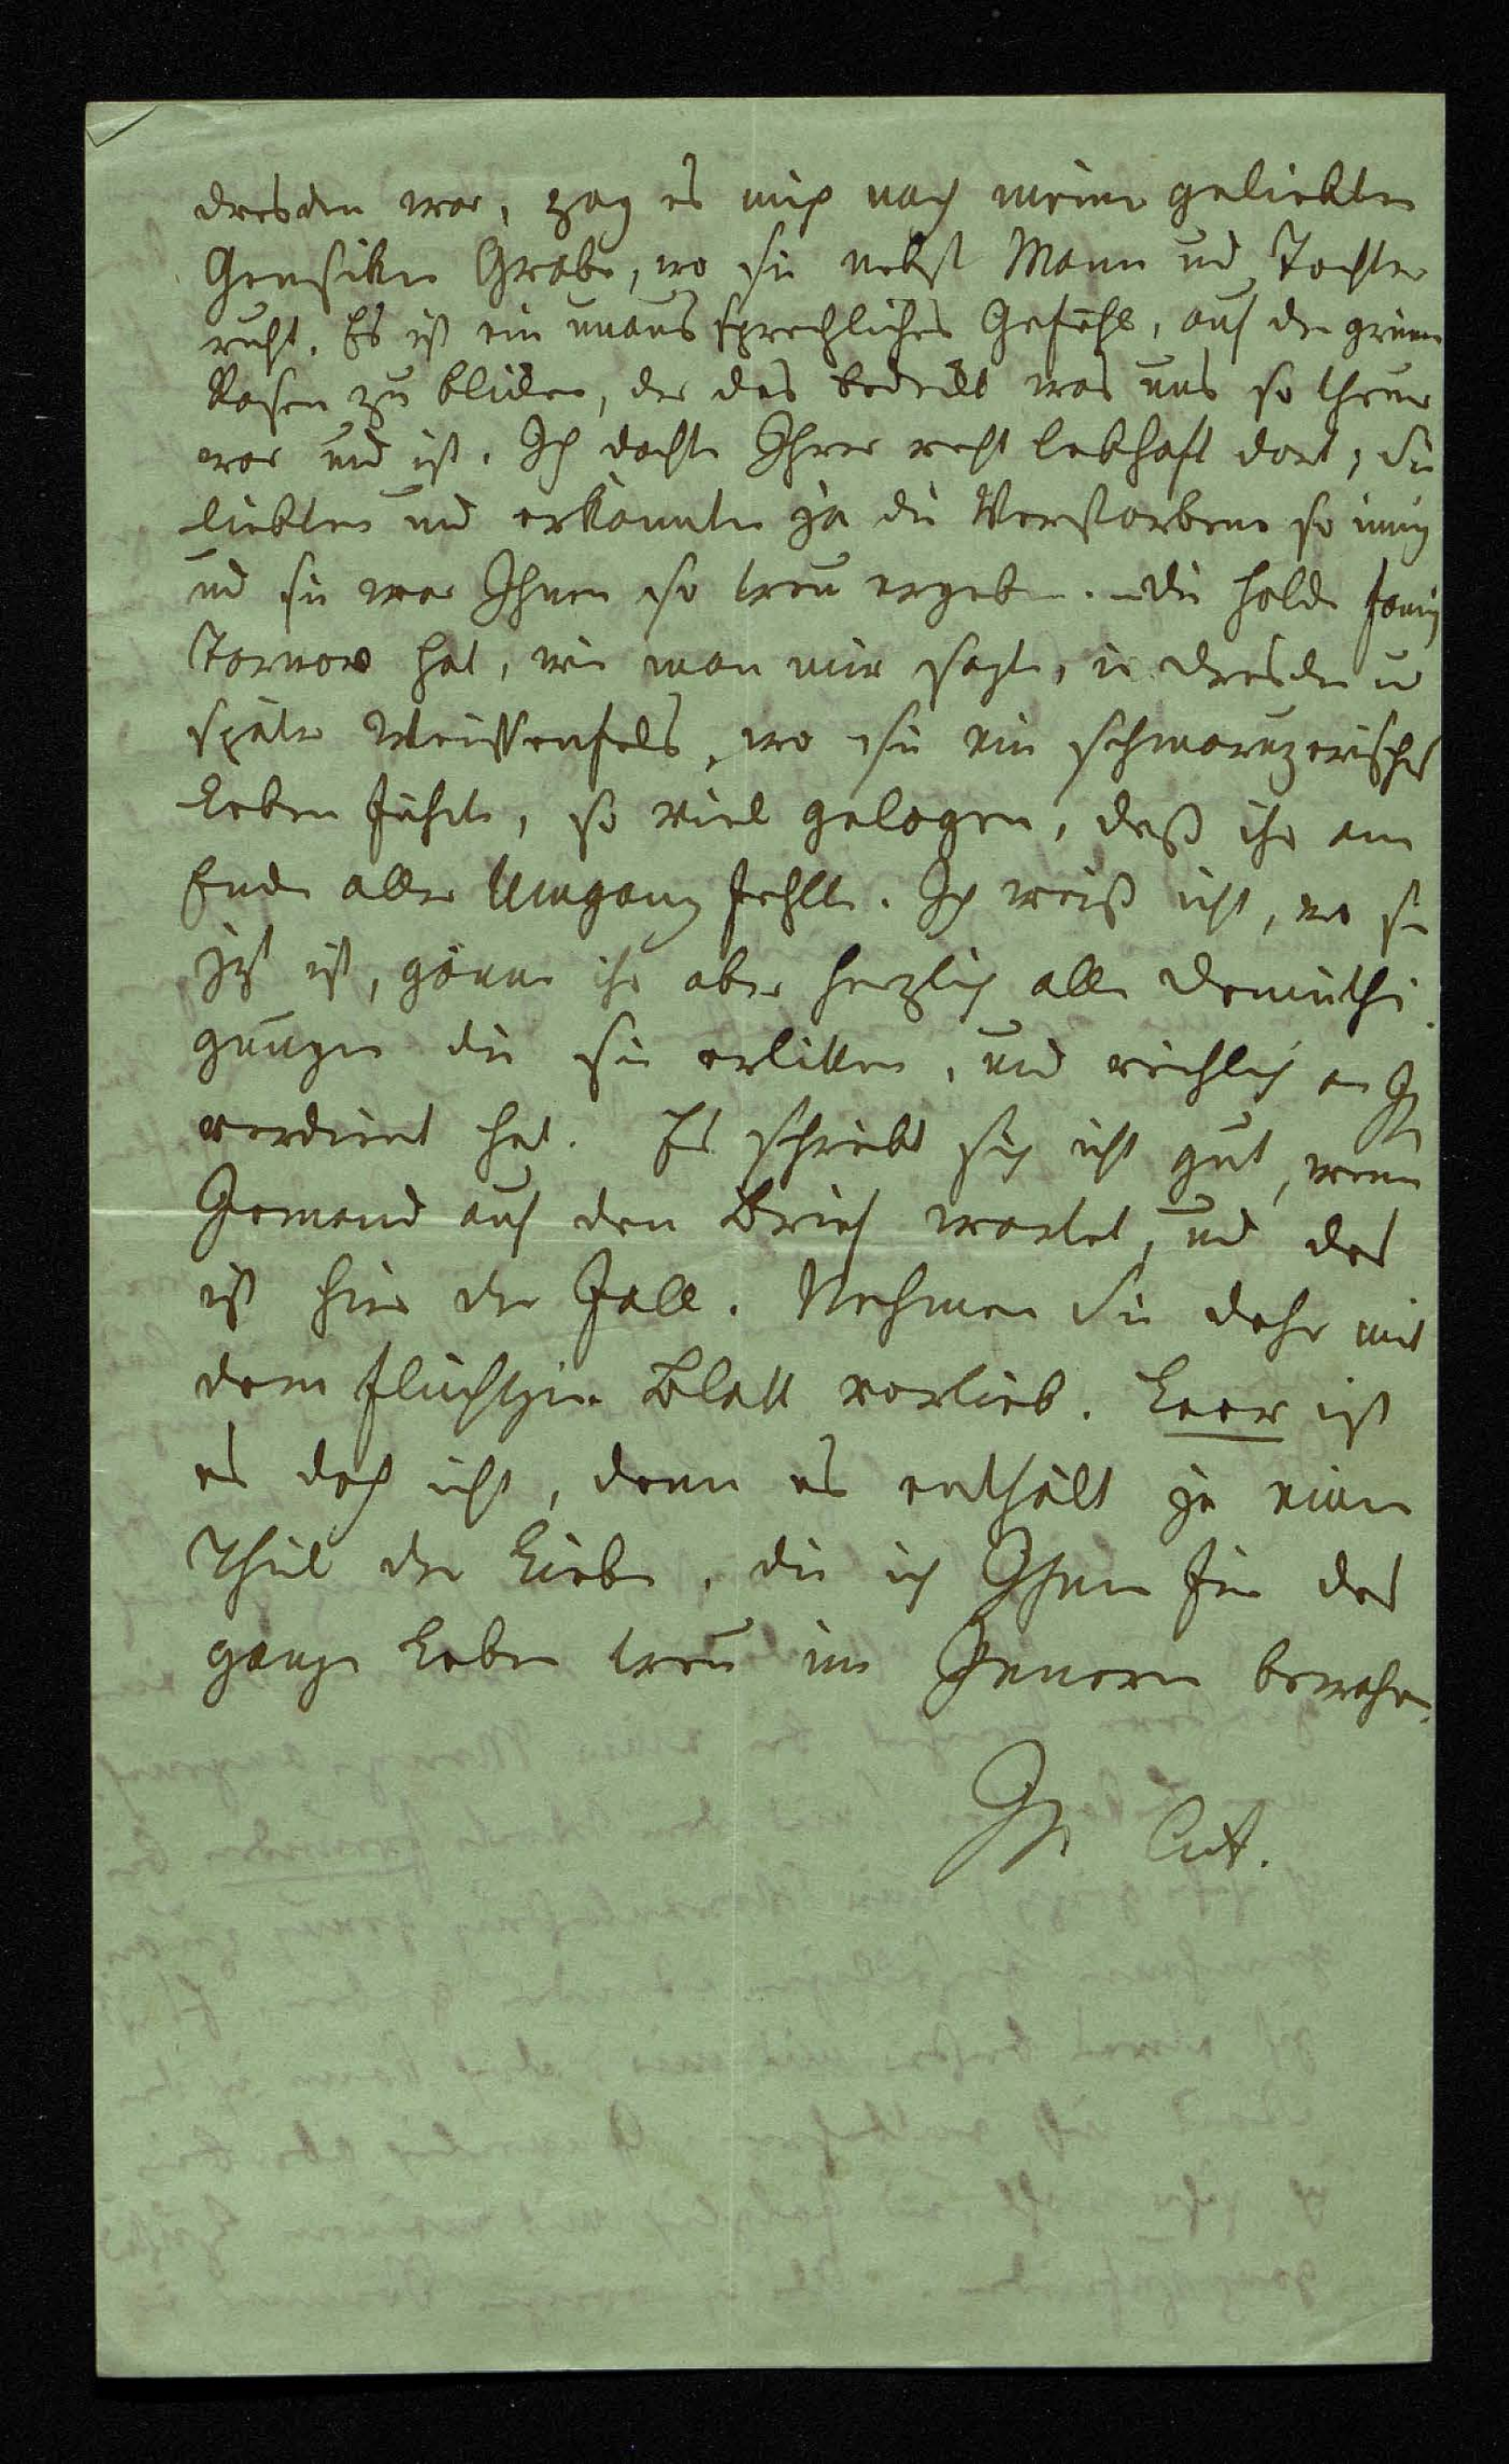 Dresden war, zog es mich nach meiner geliebten
Gensiken Grabe, wo sie nebst Mann und Tochter
ruht. Es ist ein unaussprechliches Gefühl, auf den grünen
Rasen zu blicken, der das bedeckt was uns so theuer
war und ist. Ich dachte Ihrer recht lebhaft dort; Sie
liebten und erkannten ja die Verstorbene so innig
und sie war Ihnen so treu ergeben. – Die holde Fanny
Tarnow hat, wie man mir sagte, in Dresden u
später Weissenfels, wo sie ein schmarutzerisches
Leben führte, so viel gelogen, daß ihr am
Ende aller Umgang fehlte. Ich weiß nicht, wo sie
jetzt ist, gönne ihr aber herzlich alle Demüthi
gungen die sie erlitten, und reichlich an Ih
verdient hat. Es schreibt sich nicht gut, wenn
Jemand auf den Brief wartet, und das
ist hier der Fall. Nehmen Sie daher mit
dem flüchtigen Blatt vorlieb. Leer ist
es doch nicht, denn es enthält ja einen
Theil der Liebe, die ich Ihnen für das
ganze Leben treu im Innern bewahre.
Ihre